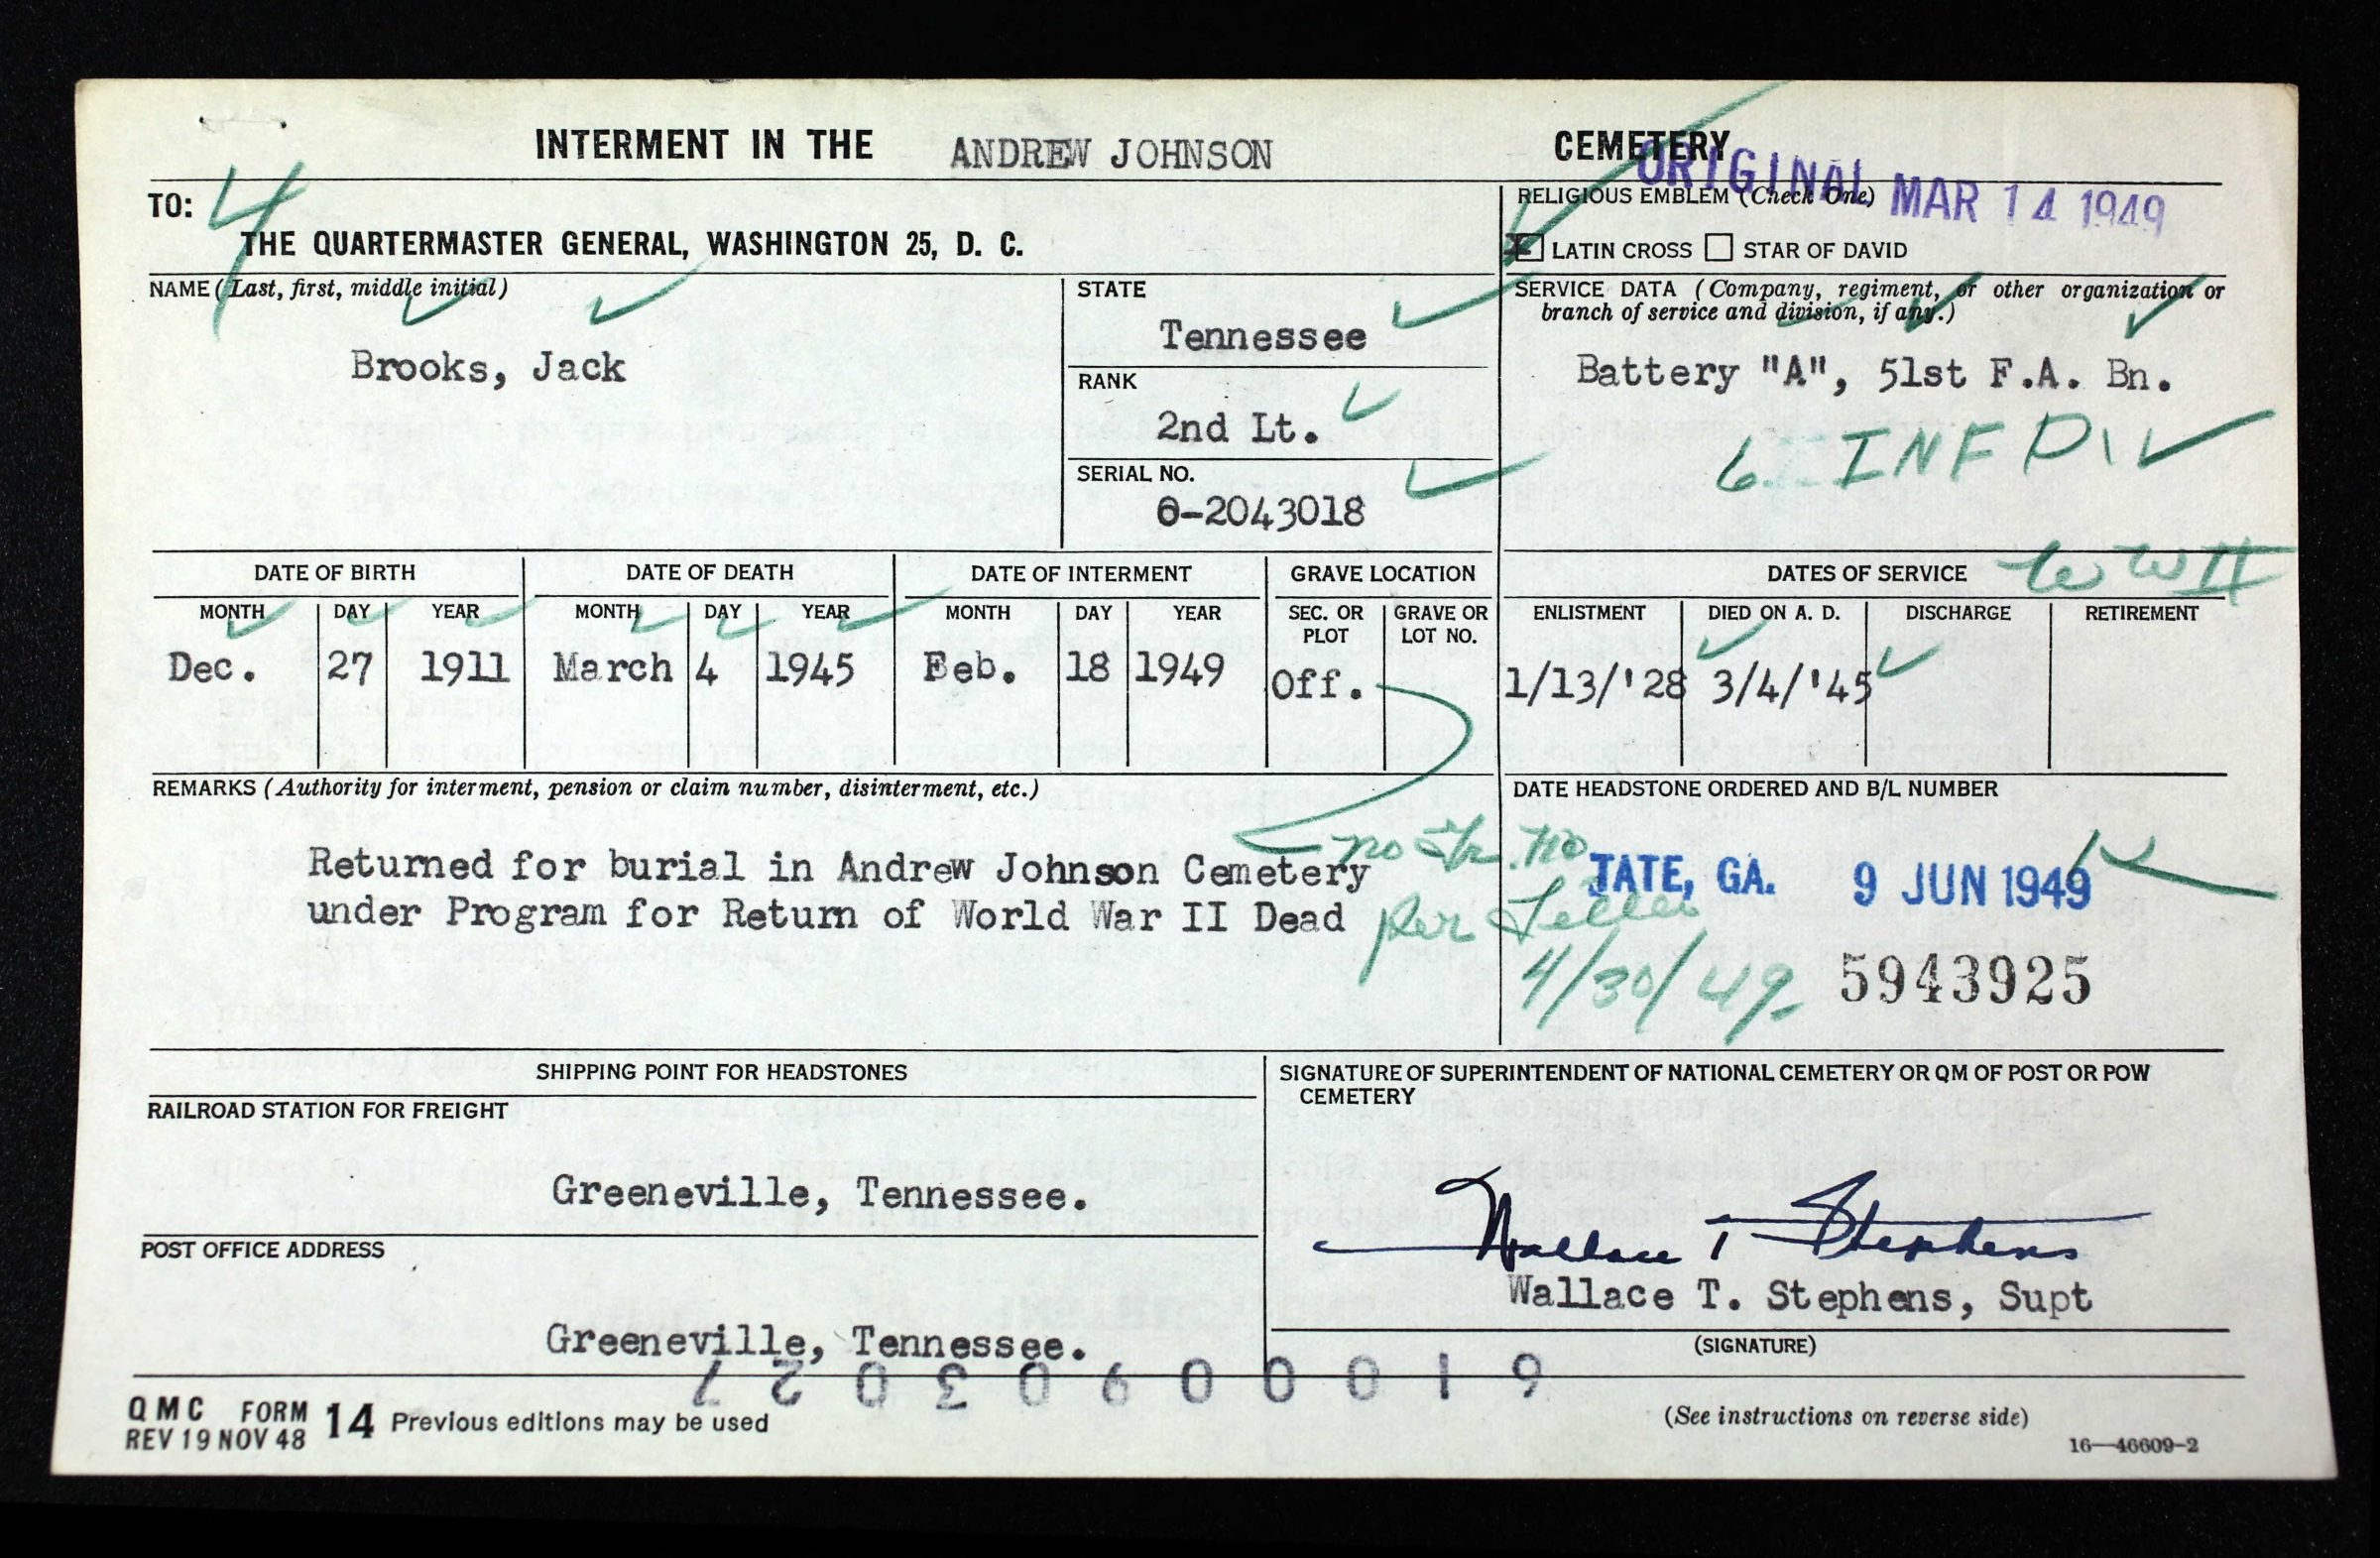 INTERMENT IN THE ANDREW JOHNSON CEMETERY
ORIGINAL MAR 14 1949
TO: 4
THE QUARTERMASTER GENERAL, WASHINGTON 25, D. C.
RELIGIOUS EMBLEM (Check One)
LATIN CROSS STAR OF DAVID
NAME (Last, first, middle initial)
Brooks, Jack
STATE
Tennessee
RANK
2nd Lt.
SERIAL NO.
O-2043018
SERVICE DATA (Company, regiment, or other organization or
branch of service and division, if any.)
Battery "A", 51st F.A. Bn.
6 INF DIV
DATE OF BIRTH DATE OF DEATH DATE OF INTERMENT GRAVE LOCATION DATES OF SERVICE WWII
MONTH DAY YEAR MONTH DAY YEAR MONTH DAY YEAR SEC. OR PLOT GRAVE OR LOT NO. ENLISTMENT DIED ON A. D. DISCHARGE RETIREMENT
Dec. 27 1911 March 4 1945 Feb. 18 1949 Off. 1/13/'28 3/4/'45
REMARKS (Authority for interment, pension or claim number, disinterment, etc.)
Returned for burial in Andrew Johnson Cemetery
under Program for Return of World War II Dead
no Gr. no
per Letter
4/30/49
DATE HEADSTONE ORDERED AND B/L NUMBER
TATE, GA. 9 JUN 1949
5943925
SHIPPING POINT FOR HEADSTONES
RAILROAD STATION FOR FREIGHT
Greeneville, Tennessee.
POST OFFICE ADDRESS
Greeneville, Tennessee.
SIGNATURE OF SUPERINTENDENT OF NATIONAL CEMETERY OR QM OF POST OR POW
CEMETERY
Wallace T Stephens
Wallace T. Stephens, Supt
(SIGNATURE)
61000903027
QMC FORM 14 Previous editions may be used
REV 19 NOV 48
(See instructions on reverse side)
16—46609-2